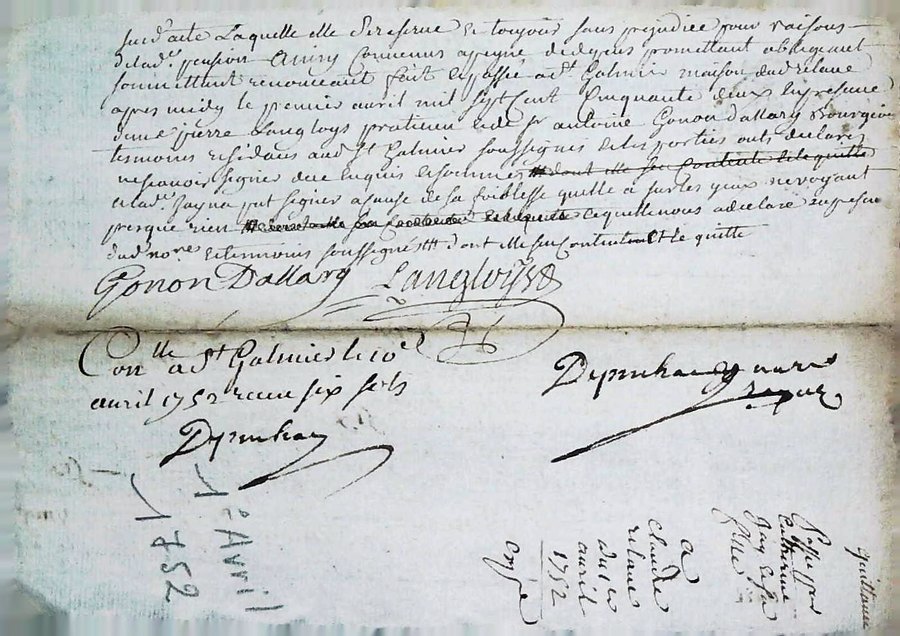 susd. acte Laquelle elle se reserve Et toujour sans prejudice pour raisons
de lad.e pension Ainsy Convenus a peyne de depens promettant obligeant
soumettant renonceant fait Et passé a St Galmier maison dud relave
apres midy le premier avril mil sept Cent Cinquante deux En presence
de me pierre Langloys praticien Et de Sr antoine Gonon Dallary Bourgeois
temoins residans aud St Galmier soussignes Et les parties ont declare
ne scavoir signer de ce enquis et sommes dont elle se Contente Et le quitte
et lad.e Jay na put signer a cause de sa foiblesse quelle a sur les yeux ne voyant
presque rien ce quelle nous a declaré en presence
dud no.re et temoins soussignés dont elle se Contente Et le quitte
Gonon Dallary Langloys
Con.lle a St Galmier le 10e
avril 1752 receu six sols
Depunhac
no.re
royal
1er Avril
1752
quittance
passé par
Catherine
Jay
fille
a
claude
relave
du 1er
avril
1752